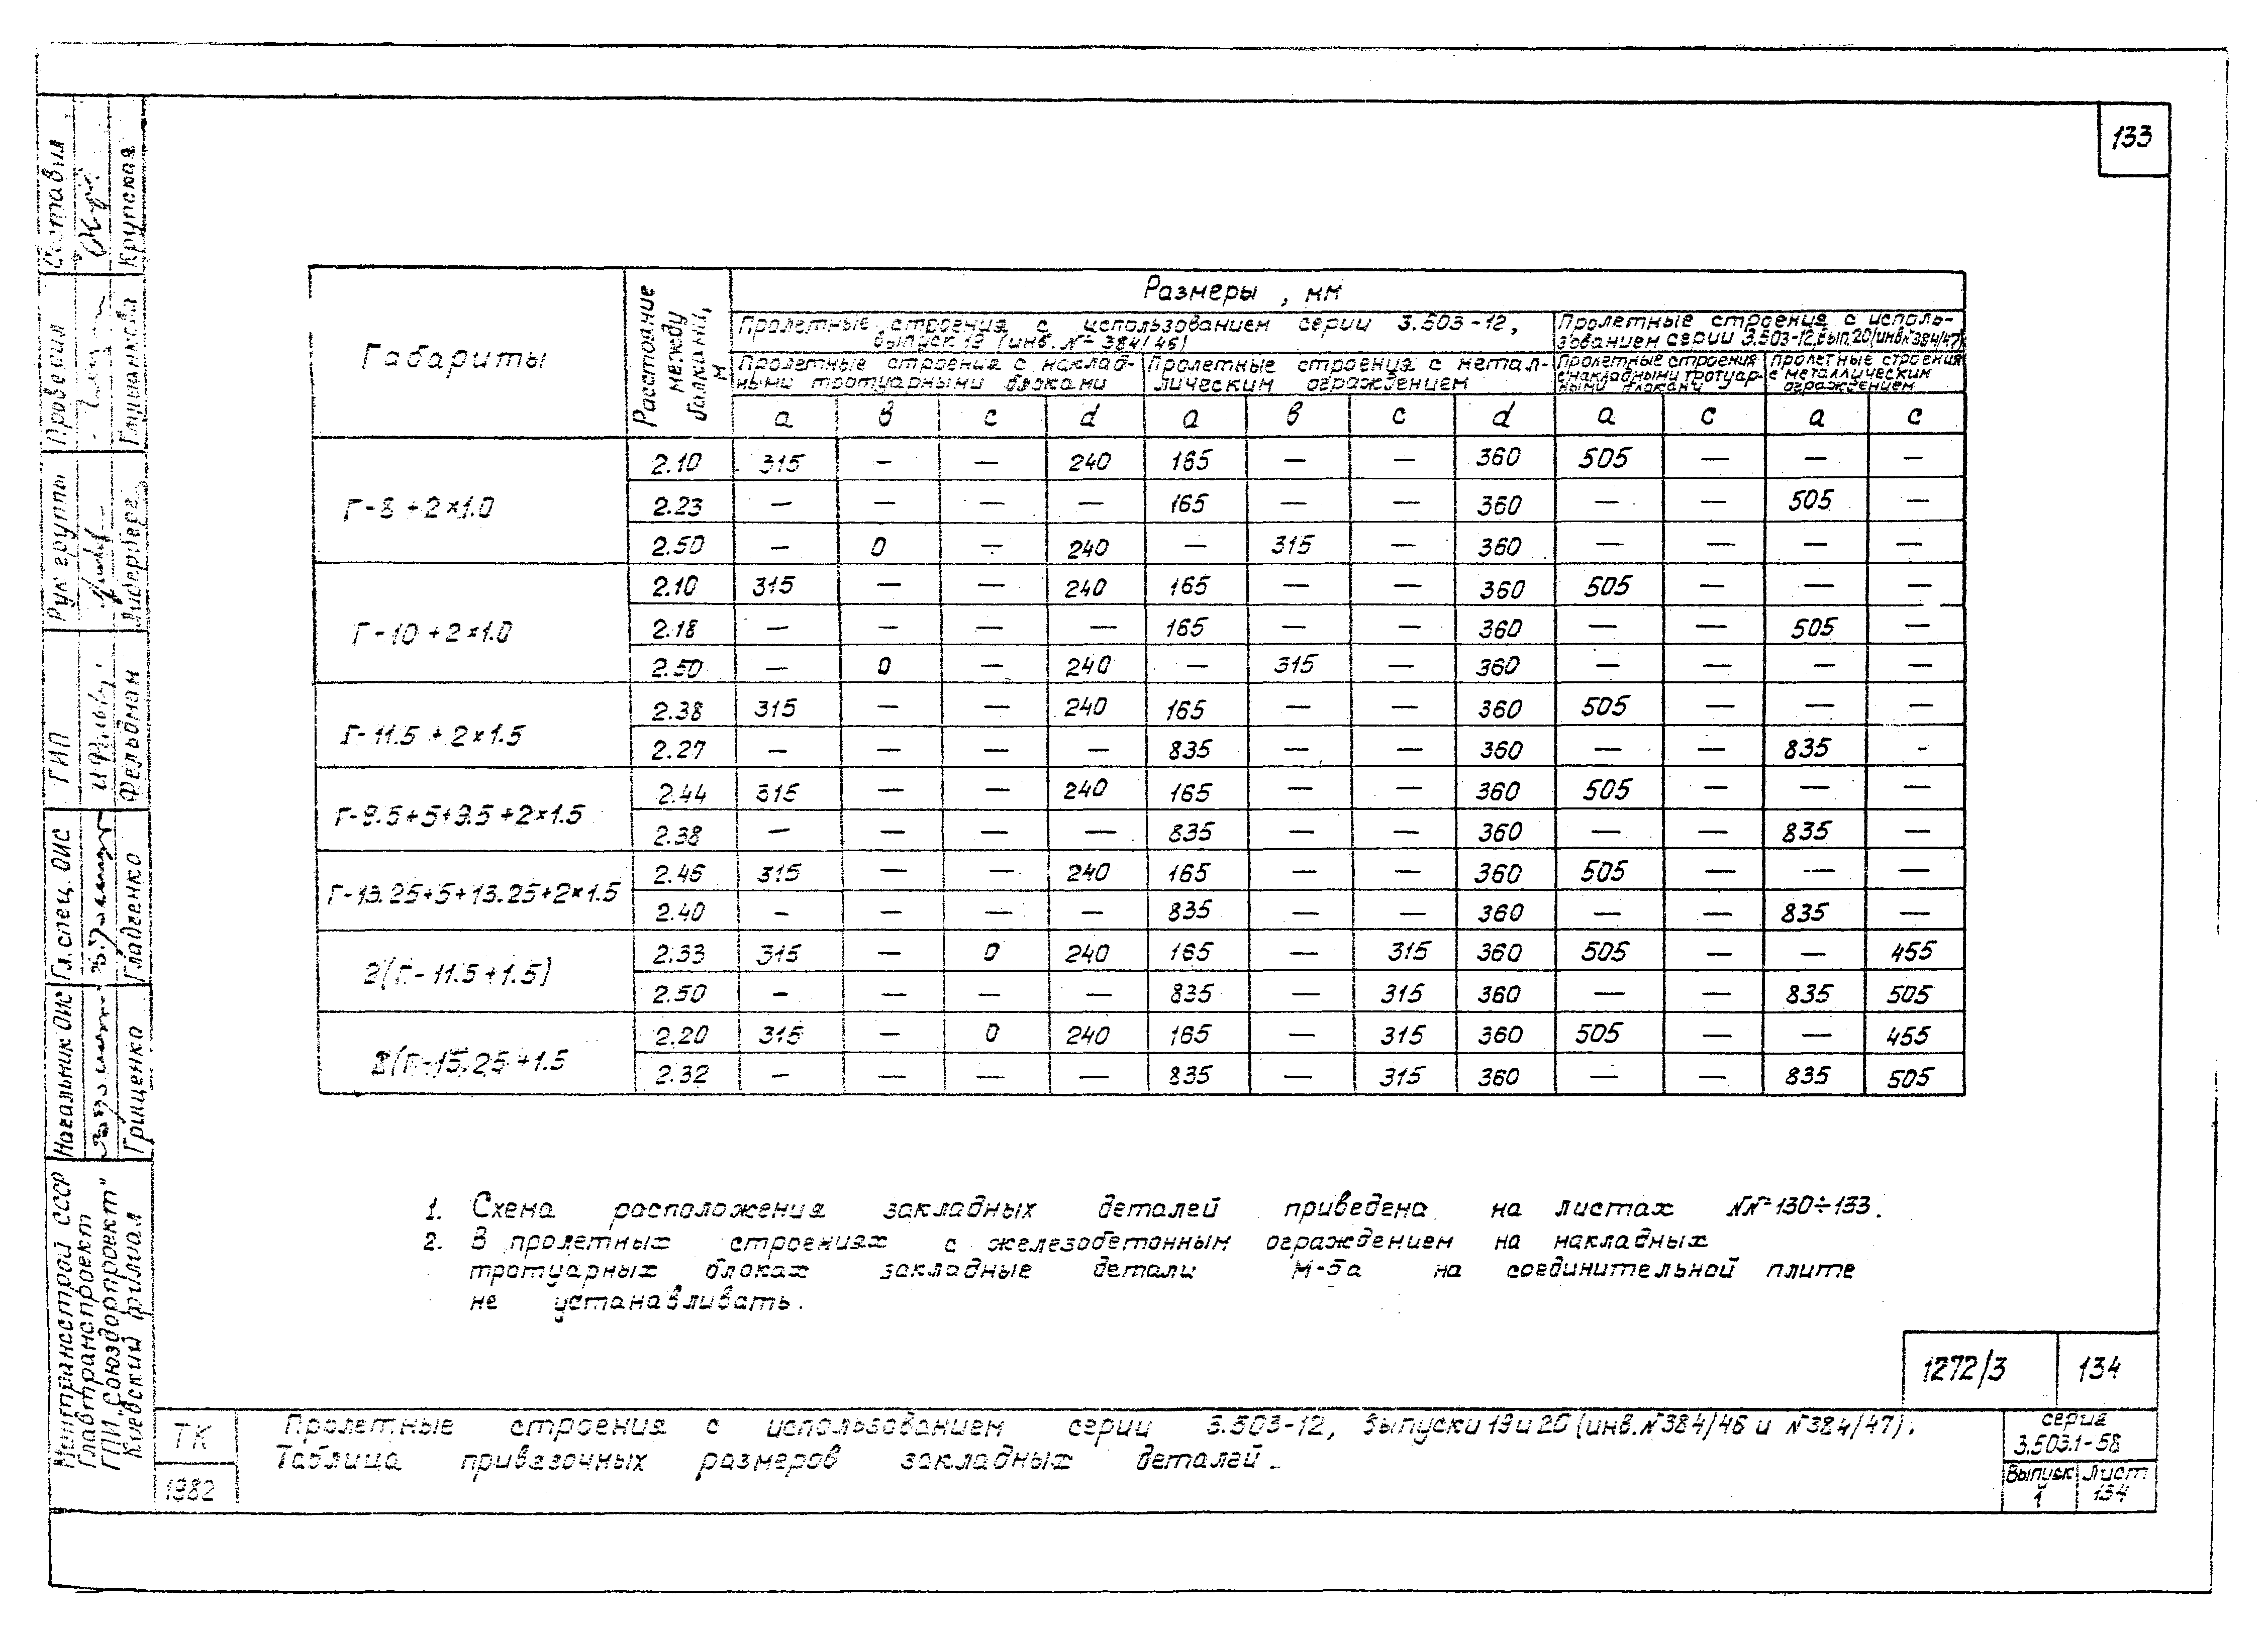 133
Габариты
Расстояние между балками, м
Размеры, мм
Пролетные строения с использованием серии 3.503-12,
выпуск 19 (инв. № 384/46)
Пролетные строения с исполь-
зованием серии 3.503-12, вып. 20 (инв.№384/47)
Пролетные строения с наклад-
ными тротуарными блоками
Пролетные строения с метал-
лическим ограждением
Пролетные строения
с накладными тротуар-
ными блоками
Пролетные строения
с металлическим
ограждением
а в с d а в с d а с а с
Г-8+2×1.0
2.10 315 — — 240 165 — — 360 505 — — —
2.23 — — — — 165 — — 360 — — 505 —
2.50 — 0 — 240 — 315 — 360 — — — —
Г-10+2×1.0
2.10 315 — — 240 165 — — 360 505 — — —
2.18 — — — — 165 — — 360 — — 505 —
2.50 — 0 — 240 — 315 — 360 — — — —
Г-11.5+2×1.5
2.38 315 — — 240 165 — — 360 505 — — —
2.27 — — — — 835 — — 360 — — 835 -
Г-9.5+5+9.5+2×1.5
2.44 315 — — 240 165 — — 360 505 — — —
2.38 — — — — 835 — — 360 — — 835 —
Г-13.25+5+13.25+2×1.5
2.46 315 — — 240 165 — — 360 505 — — —
2.40 — — — — 835 — — 360 — — 835 —
2(Г-11.5+1.5)
2.33 315 — 0 240 165 — 315 360 505 — — 455
2.50 — — — — 835 — 315 360 — — 835 505
2(Г-15.25+1.5
2.20 315 — 0 240 165 — 315 360 505 — — 455
2.32 — — — — 835 — 315 360 — — 835 505
1. Схема расположения закладных деталей приведена на листах №№130÷133.
2. В пролетных строениях с железобетонным ограждением на накладных
тротуарных блоках закладные детали М-5а на соединительной плите
не устанавливать.
1272/3 134
ТК
1982
Пролетные строения с использованием серии 3.503-12, Выпуски 19 и 20 (инв.№384/46 и №384/47).
Таблица привязочных размеров закладных деталей.
серия
3.503.1-58
Выпуск Лист
1 134
Составил Крупская
Проверил Глушанкова
Рук группы
ГИП Фельдман
Гл. спец. ОИС Гладченко
Начальник ОИС Гриценко
Минтрансстрой СССР
Главтранспроект
ГПИ "Союздорпроект"
Киевский филиал